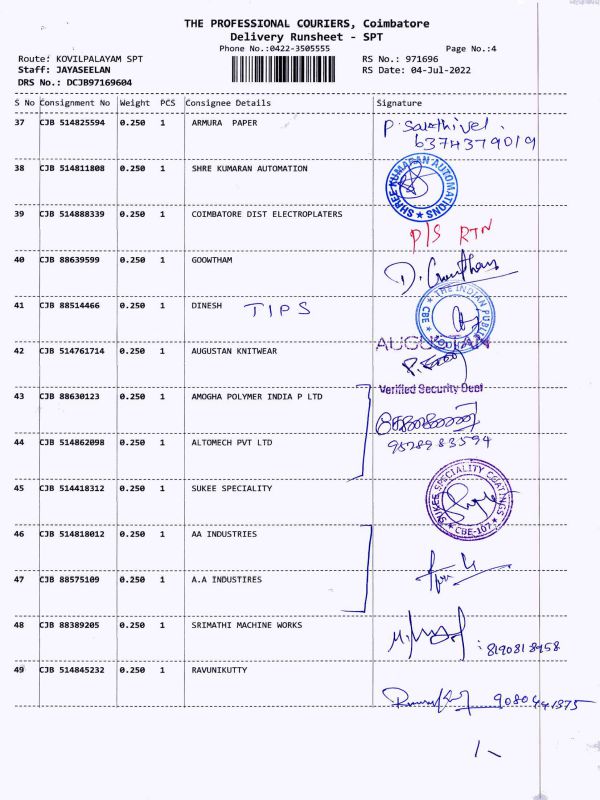 THE PROFESSIONAL COURIERS, Coimbatore
Delivery Runsheet - SPT
Phone No.:0422-3505555 Page No.:4
Route: KOVILPALAYAM SPT RS No.: 971696
Staff: JAYASEELAN RS Date: 04-Jul-2022
DRS No.: DCJB97169604
S No Consignment No Weight PCS Consignee Details Signature
37 CJB 514825594 0.250 1 ARMURA PAPER P. Sakthivel.
6374379019
38 CJB 514811808 0.250 1 SHRE KUMARAN AUTOMATION
SHREE KUMARAN AUTOMATIONS
39 CJB 514888339 0.250 1 COIMBATORE DIST ELECTROPLATERS
P/S RTN
40 CJB 88639599 0.250 1 GOOWTHAM
D. Gowtham
41 CJB 88514466 0.250 1 DINESH TIPS
THE INDIAN PUBLIC SCHOOL CBE
42 CJB 514761714 0.250 1 AUGUSTAN KNITWEAR
AUGUSTAN
43 CJB 88630123 0.250 1 AMOGHA POLYMER INDIA P LTD
Verified Security Dept
44 CJB 514862098 0.250 1 ALTOMECH PVT LTD
9528983594
45 CJB 514418312 0.250 1 SUKEE SPECIALITY
SUKEE SPECIALITY COATINGS CBE-107
46 CJB 514818012 0.250 1 AA INDUSTRIES
47 CJB 88575109 0.250 1 A.A INDUSTIRES
48 CJB 88389205 0.250 1 SRIMATHI MACHINE WORKS
: 8190818958
49 CJB 514845232 0.250 1 RAVUNIKUTTY
9080441375